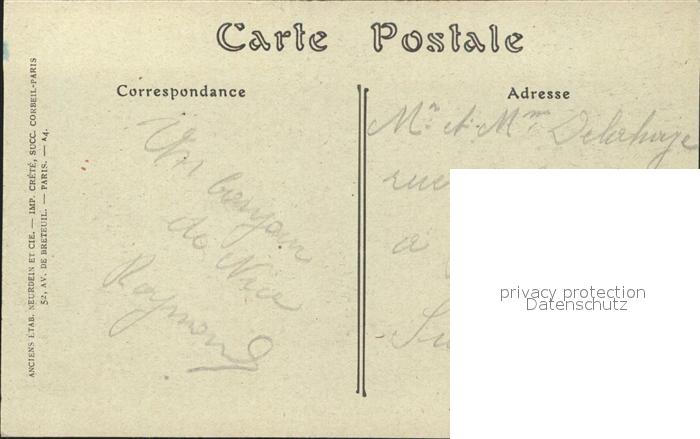 Carte Postale
Correspondance
Un bonjour
de Nice
Raymond
Adresse
Mr et Mme Delahaye
rue
a
ANCIENS ÉTAB. NEURDEIN ET CIE. — IMP. CRÉTÉ, SUCC. CORBEIL-PARIS
52, AV. DE BRETEUIL. — PARIS. — A4.
privacy protection
Datenschutz